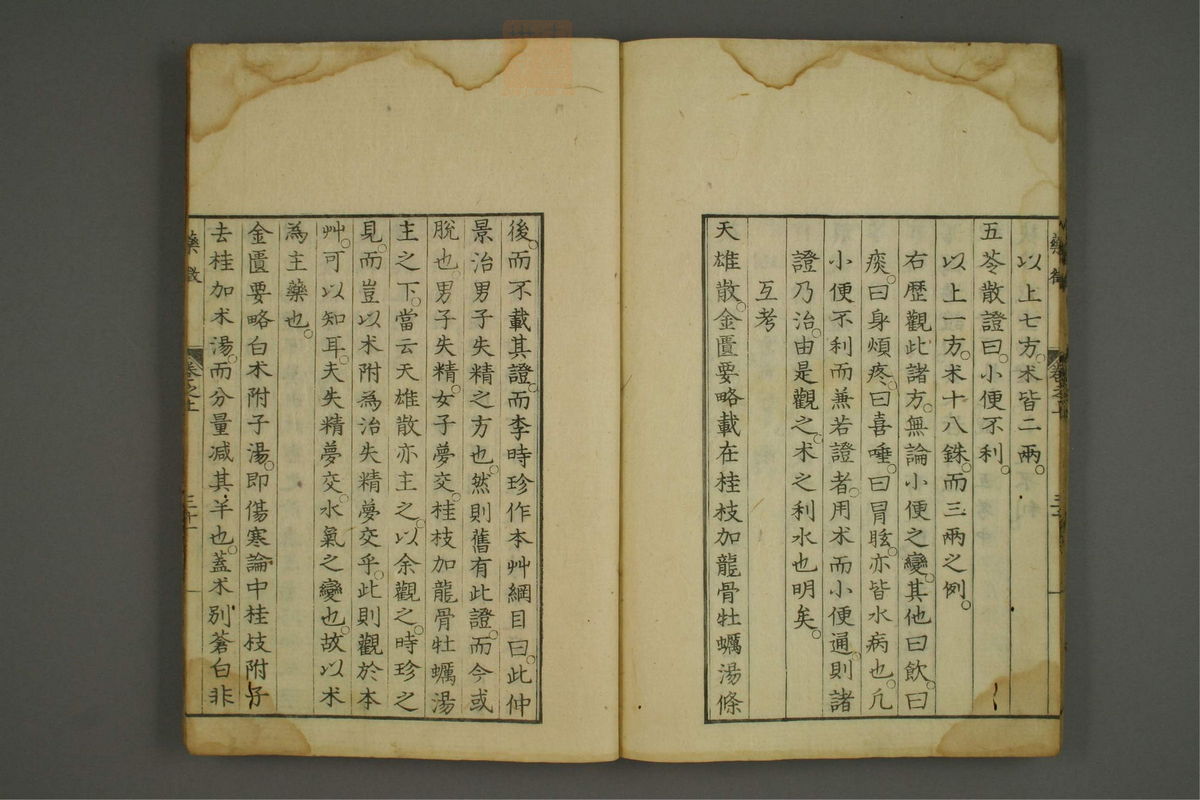 以上七方。朮皆二兩。
五苓散證曰。小便不利。
以上一方。朮十八銖。而三兩之例。
右歷觀此諸方。無論小便之變。其他曰飲。曰
痰。曰身煩疼。曰喜唾。曰冒眩。亦皆水病也。凡
小便不利而兼若證者。用朮而小便通。則諸
證乃治。由是觀之。朮之利水也明矣。
互考
天雄散。金匱要略載在桂枝加龍骨牡蠣湯條
後。而不載其證。而李時珍作本艸綱目曰。此仲
景治男子失精之方也。然則舊有此證。而今或
脫也。男子失精。女子夢交。桂枝加龍骨牡蠣湯
主之下。當云天雄散亦主之。以余觀之。時珍之
見。而豈以朮附為治失精夢交乎。此則觀於本
艸。可以知耳。夫失精夢交。水氣之變也。故以朮
為主藥也。
金匱要略白朮附子湯。即傷寒論中桂枝附子
去桂加朮湯。而分量減其半也。蓋朮別蒼白非
藥徵
卷之上